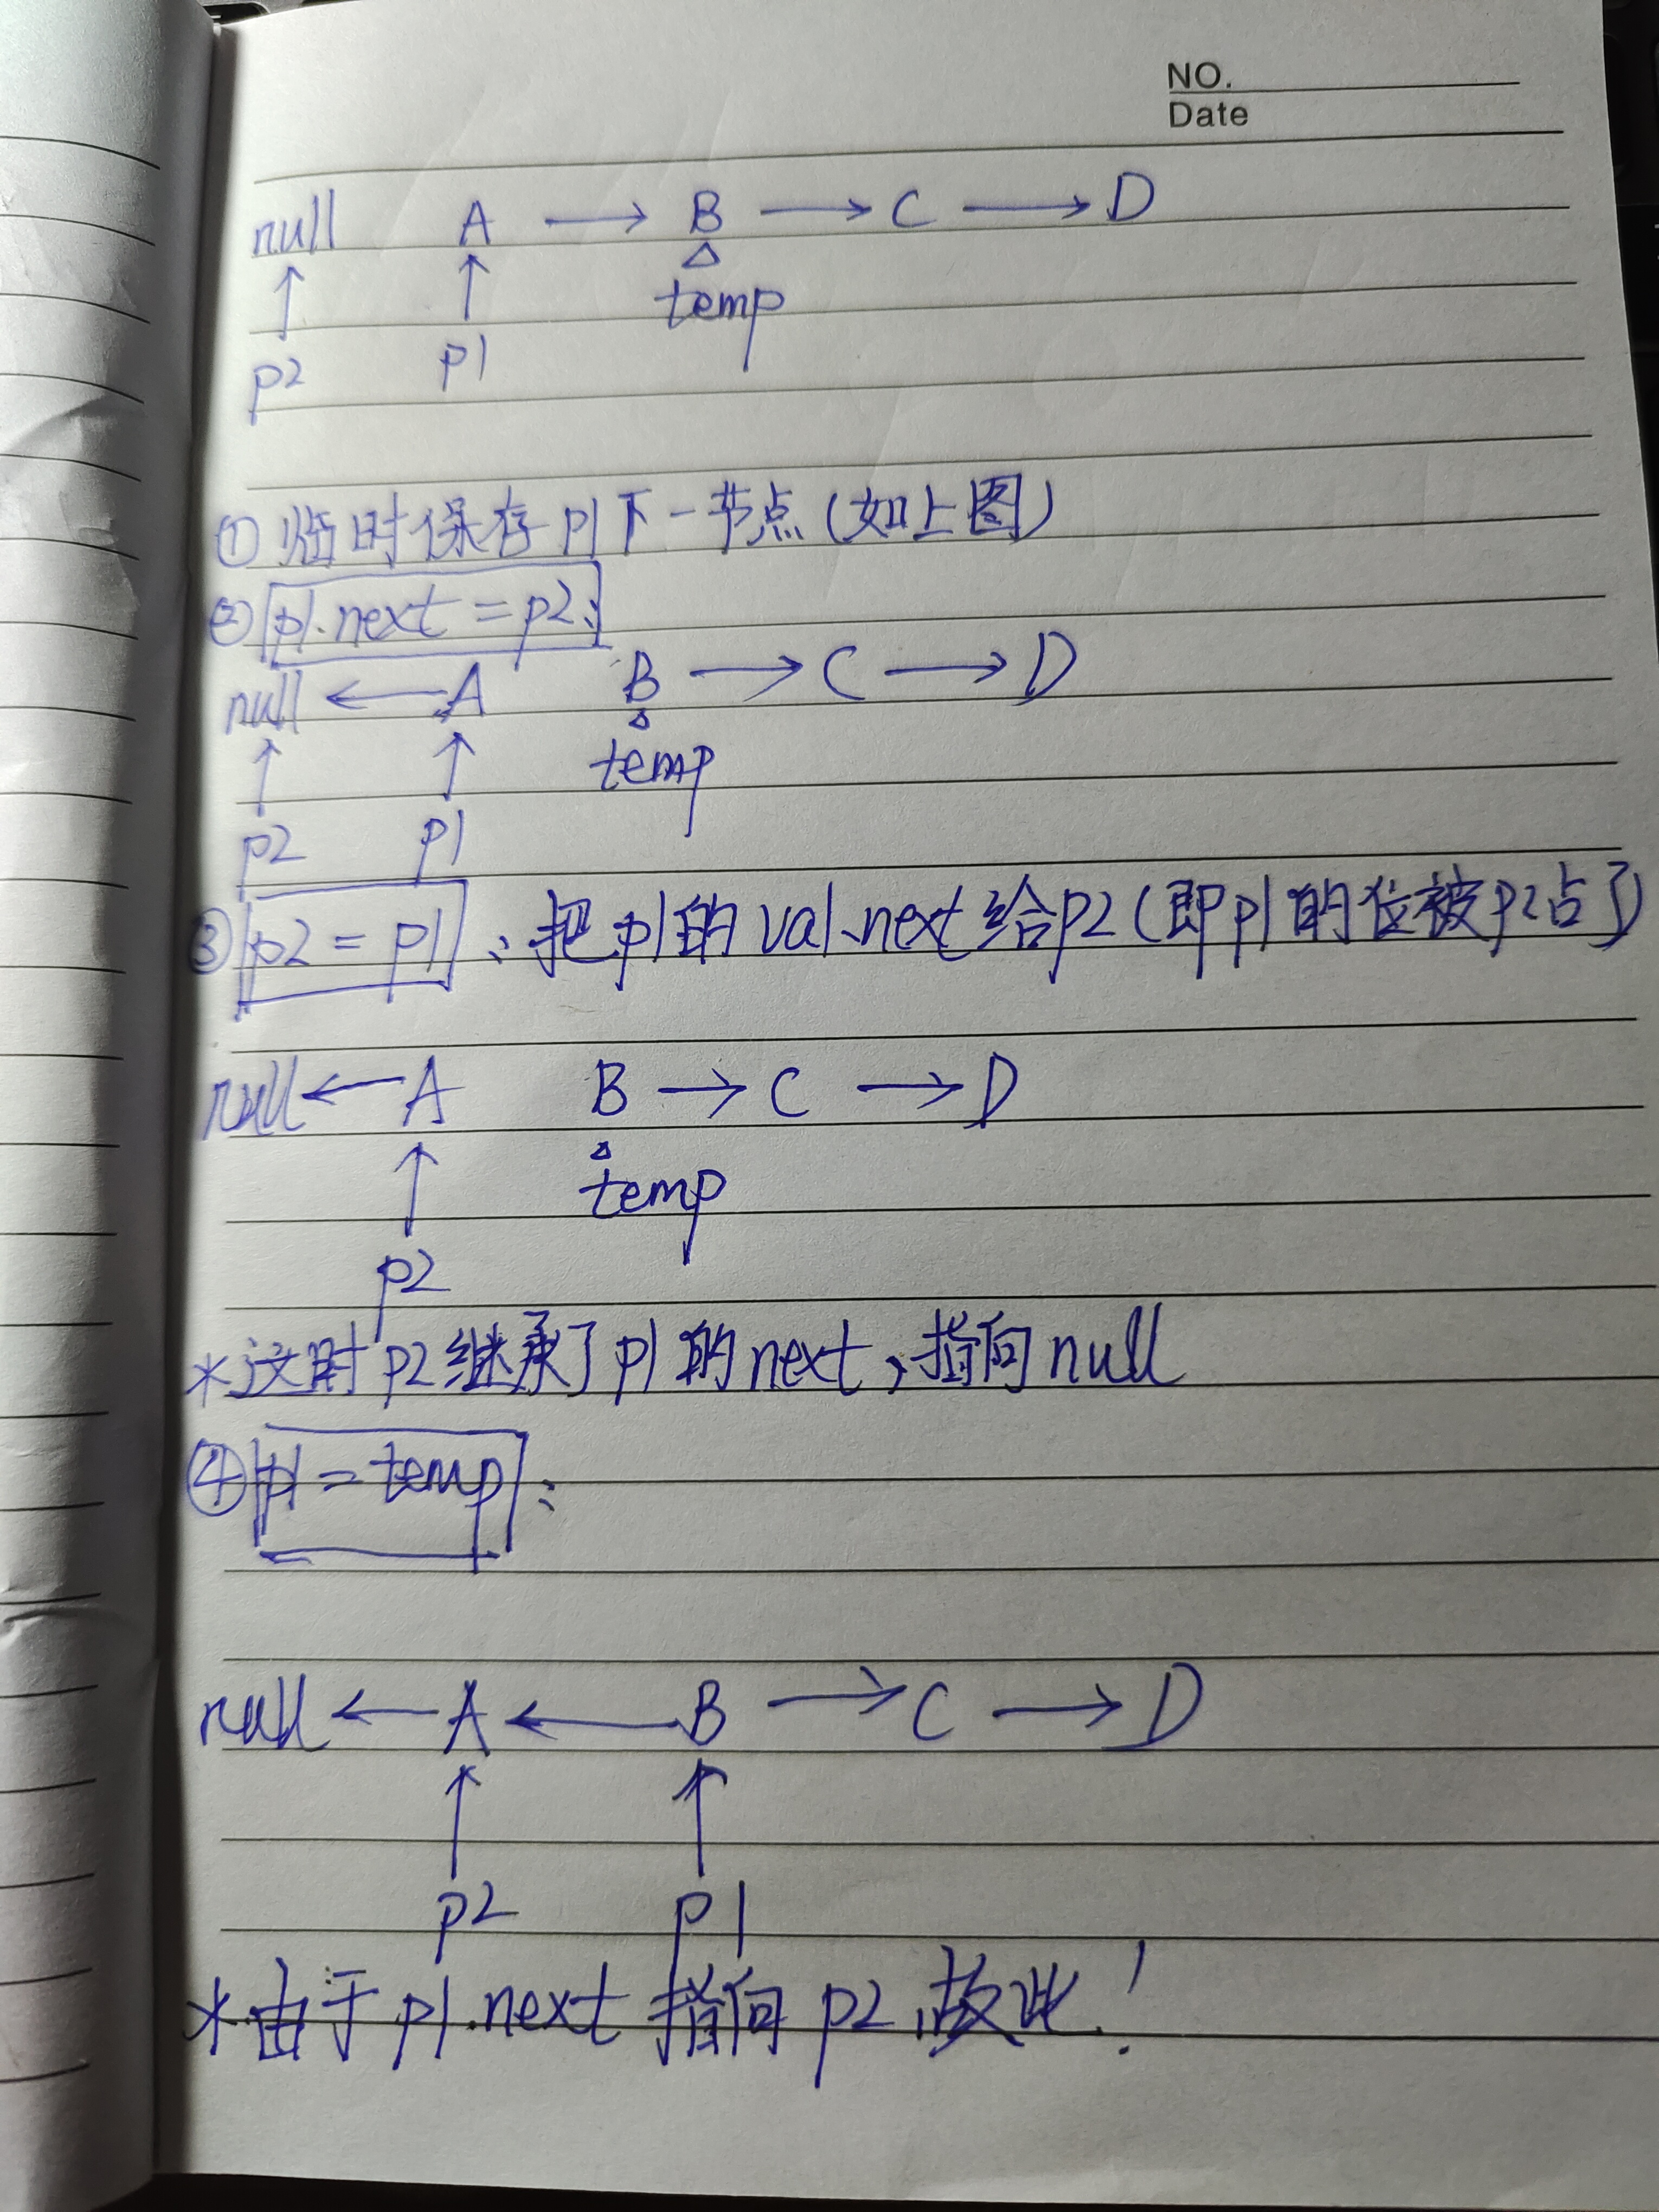 NO.
Date
null A → B → C → D
temp
p2 p1
①临时保存p1下一节点(如上图)
②p1.next=p2:
null ← A B → C → D
temp
p2 p1
③p2 = p1:把p1的val、next给p2(即p1的位被p2占了)
null ← A B → C → D
temp
p2
*这时p2继承了p1的next,指向null
④p1=temp:
null ← A ← B → C → D
p2 p1
*由于p1.next指向p2,故此!